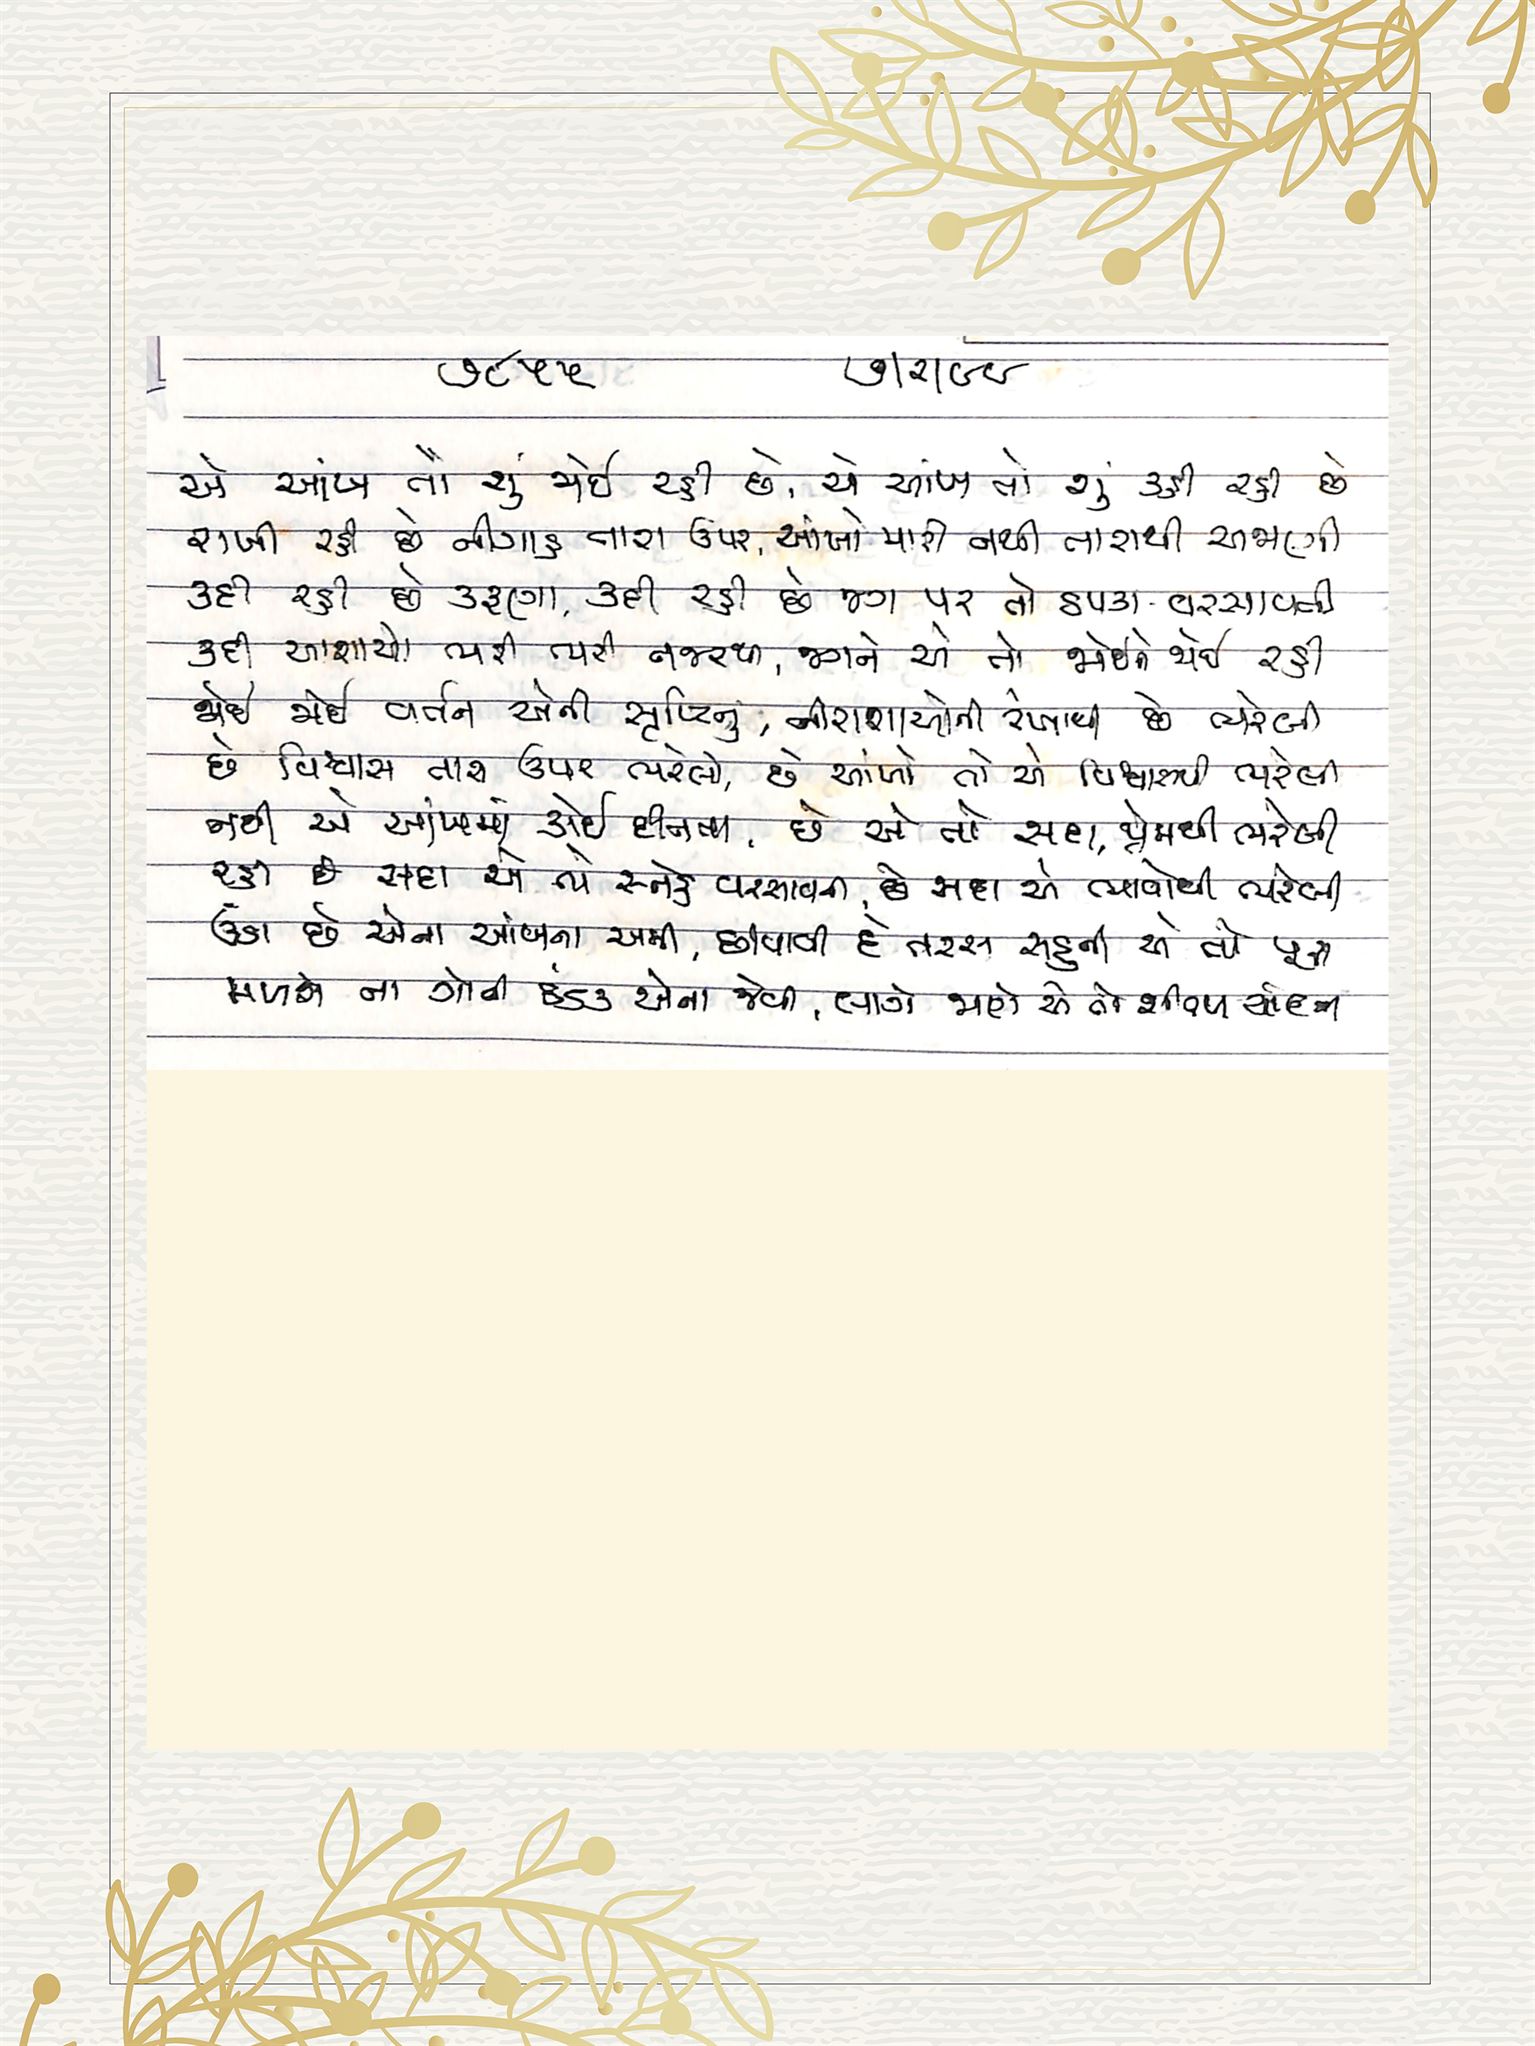 ૭૯૫૫ ૭/૨/૯૯
એ આંખ તો શું જોઈ રહી છે, એ આંખ તો શું કહી રહી છે
રાખી રહી છે નીગાહ તારા ઉપર, આંખો મારી નથી તારાથી અજાણી
કદી રહી છે કરૂણા, કદી રહી છે જગ પર તો ઠપકા વરસાવતી
કદી આશાઓ ભરી ભરી નજરથી, જગને એ તો જોઈને જોઈ રહી
જોઈ જોઈ વર્તન એની સૃષ્ટિનું, નીરાશાઓની રેખાથી છે ભરેલી
છે વિશ્વાસ તારા ઉપર ભરેલો, છે આંખો તો એ વિશ્વાસથી ભરેલી
નથી એ આંખમાં કોઈ હીનતા, છે એ તો સદા, પ્રેમથી ભરેલી
રહી છે સદા એ તો સ્નેહ વરસાવતી, છે સદા એ ભાવોથી ભરેલી
ઉંડા છે એના આંખના અમી, છીપાવી દે તરસ સહુની એ તો પૂરી
મળશે ના ગોતી ઠંડક એના જેવી, લાગે જાણે એ તો શીતળ ચાંદની